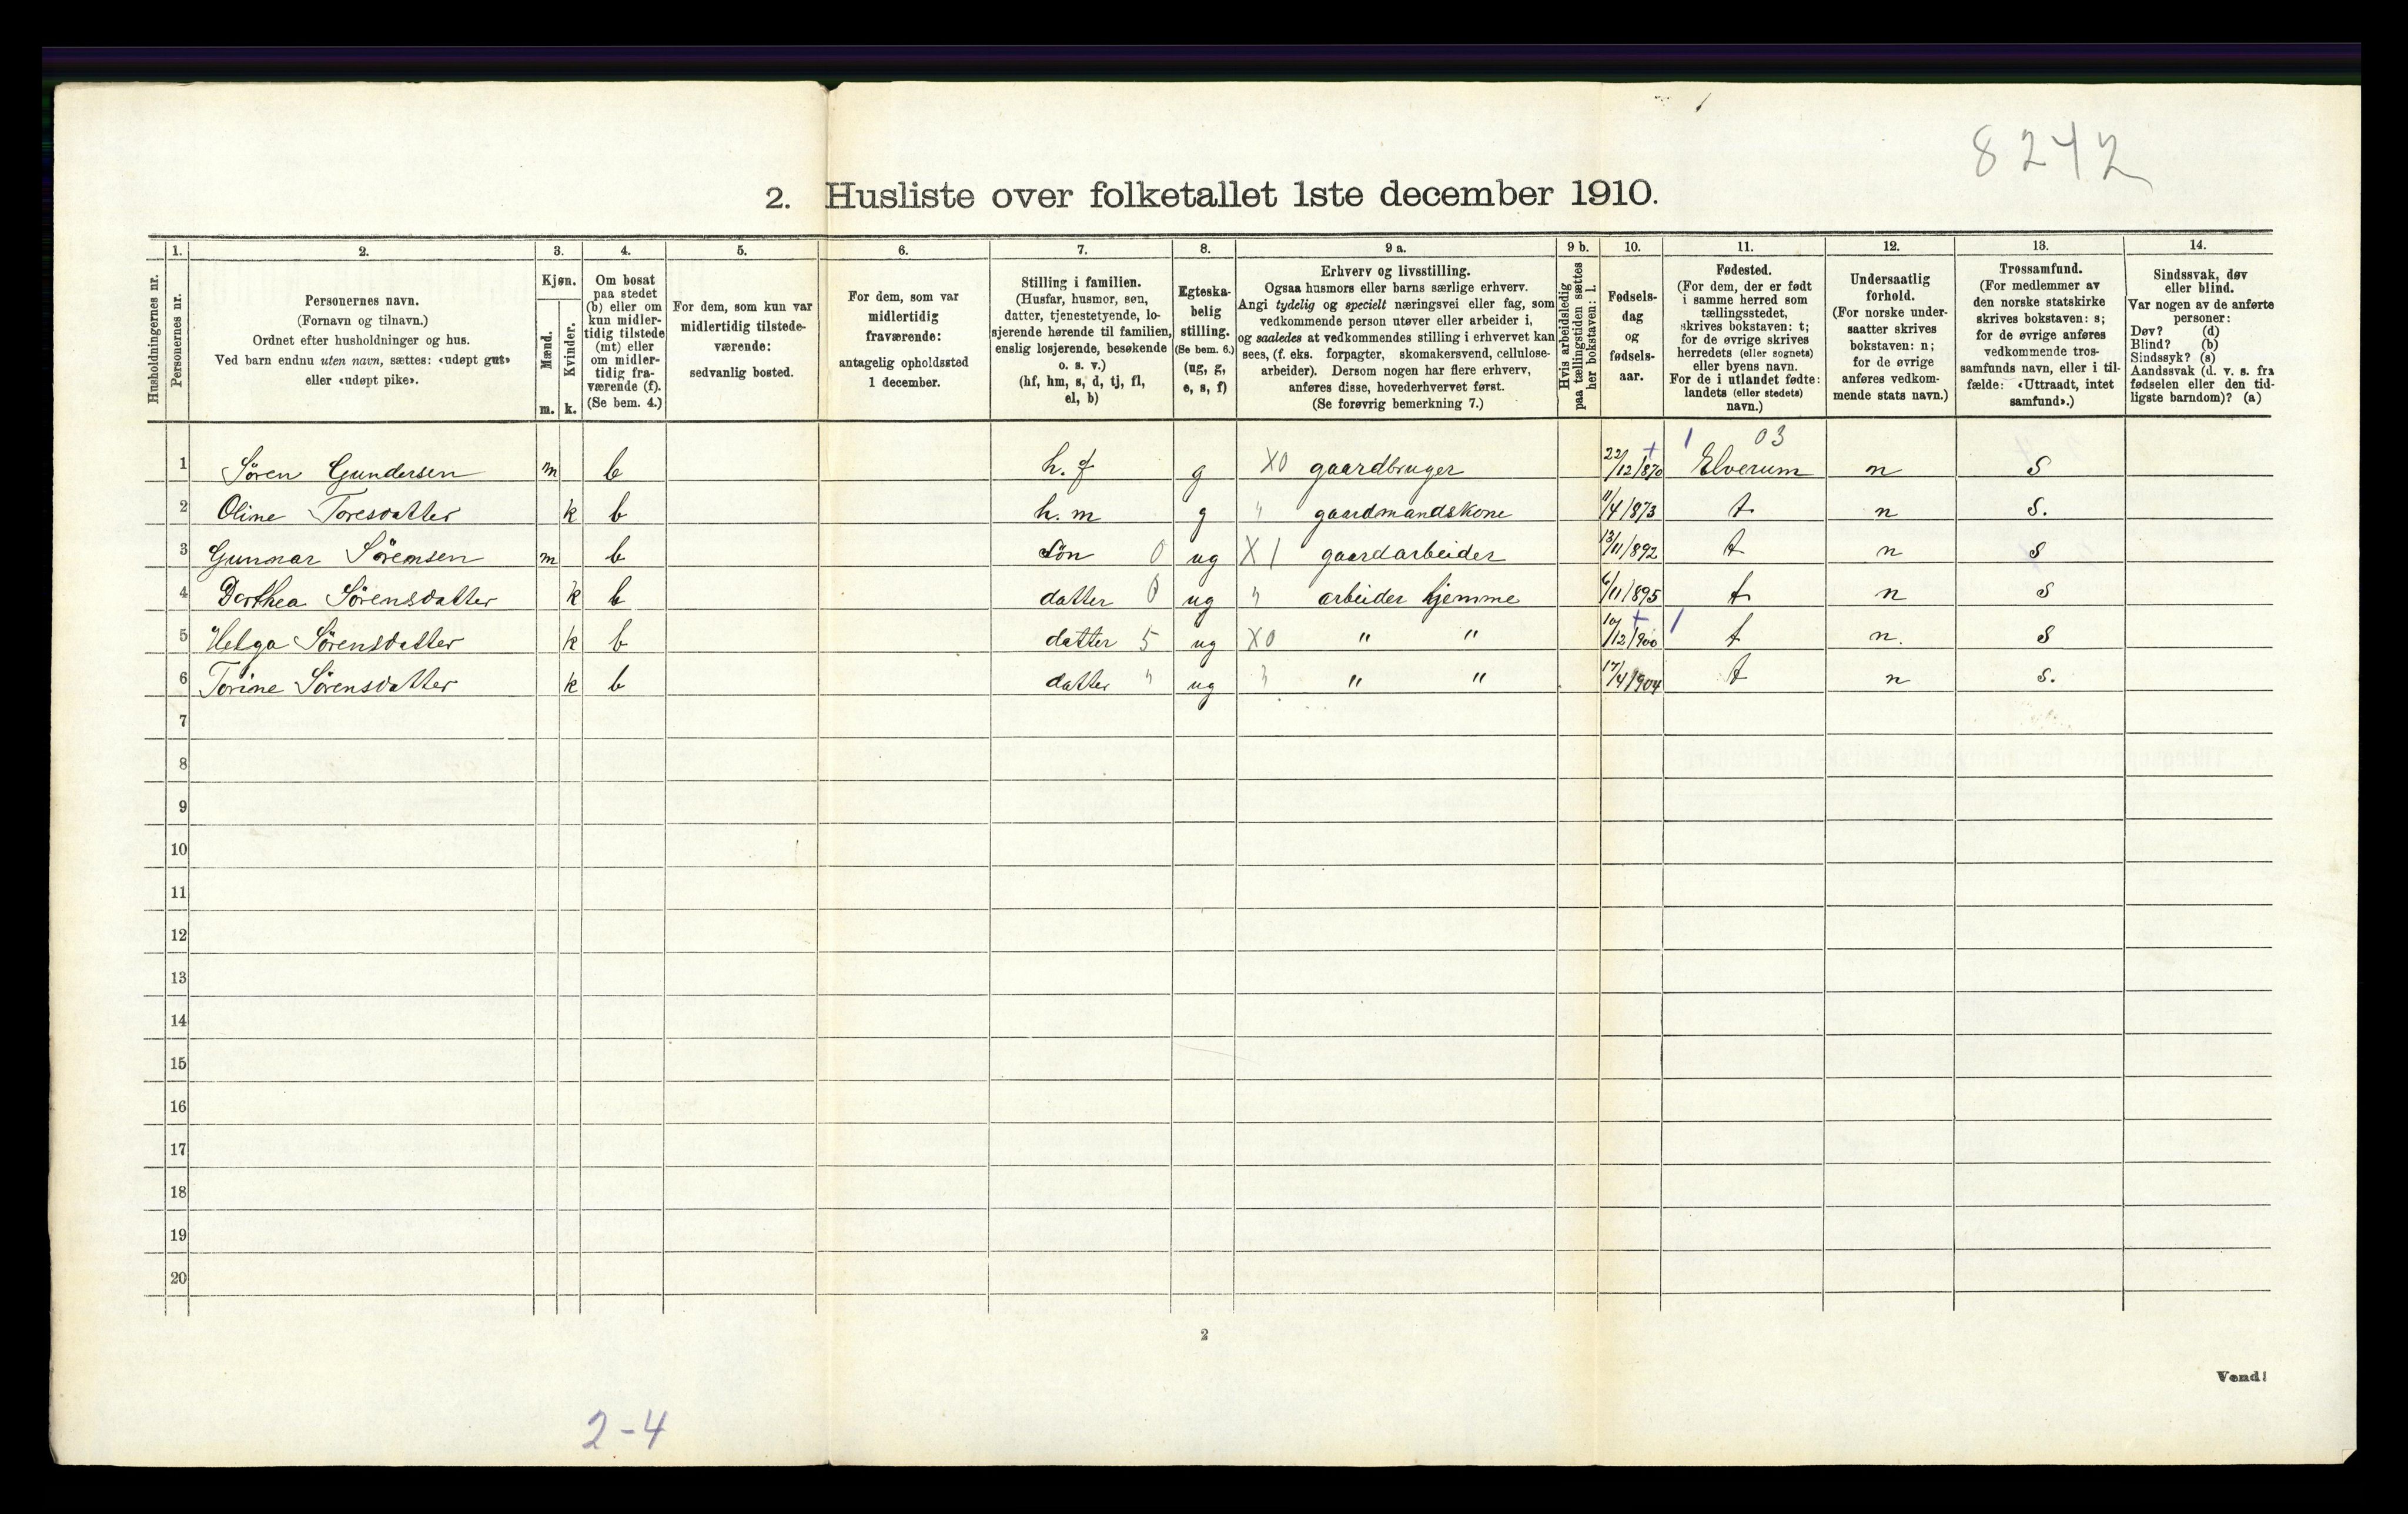 8242
2. Husliste over folketallet 1ste december 1910.
1. 2. 3. 4. 5. 6. 7. 8. 9 a. 9 b. 10. 11. 12. 13. 14.
Husholdningernes nr.
Personernes nr.
Personernes navn.
(Fornavn og tilnavn.)
Ordnet efter husholdninger og hus.
Ved barn endnu uten navn, sættes: «udøpt gut»
eller «udøpt pike».
Kjøn.
Mænd.
Kvinder.
m. k.
Om bosat
paa stedet
(b) eller om
kun midler-
tidig tilstede
(mt) eller
om midler-
tidig fra-
værende (f).
(Se bem. 4.)
For dem, som kun var
midlertidig tilstede-
værende:
sedvanlig bosted.
For dem, som var
midlertidig
fraværende:
antagelig opholdssted
1 december.
Stilling i familien.
(Husfar, husmor, søn,
datter, tjenestetyende, lo-
sjerende hørende til familien,
enslig losjerende, besøkende
o. s. v.)
(hf, hm, s, d, tj, fl,
el, b)
Egteska-
belig
stilling.
(Se bem. 6.)
(ug, g,
e, s, f)
Erhverv og livsstilling.
Ogsaa husmors eller barns særlige erhverv.
Angi tydelig og specielt næringsvei eller fag, som
vedkommende person utøver eller arbeider i,
og saaledes at vedkommendes stilling i erhvervet kan
sees, (f. eks. forpagter, skomakersvend, cellulose-
arbeider). Dersom nogen har flere erhverv,
anføres disse, hovederhvervet først.
(Se forøvrig bemerkning 7.)
Hvis arbeidsledig
paa tællingstiden sættes
her bokstaven: l.
Fødsels-
dag
og
fødsels-
aar.
Fødested.
(For dem, der er født
i samme herred som
tællingsstedet,
skrives bokstaven: t;
for de øvrige skrives
herredets (eller sognets)
eller byens navn.
For de i utlandet fødte:
landets (eller stedets)
navn.)
Undersaatlig
forhold.
(For norske under-
saatter skrives
bokstaven: n;
for de øvrige
anføres vedkom-
mende stats navn.)
Trossamfund.
(For medlemmer av
den norske statskirke
skrives bokstaven: s;
for de øvrige anføres
vedkommende tros-
samfunds navn, eller i til-
fælde: «Uttraadt, intet
samfund».)
Sindssvak, døv
eller blind.
Var nogen av de anførte
personer:
Døv? (d)
Blind? (b)
Sindssyk? (s)
Aandssvak (d. v. s. fra
fødselen eller den tid-
ligste barndom)? (a)
1 03
1 Søren Gundersen m b h. f g X0 gaardbruger 22/12/870 + Elverum n S
2 Oline Toresdatter k b h. m g " gaardmandskone 11/4/873 t n S.
3 Gunnar Sørensen m b Søn 0 ug X1 gaardarbeider 13/11/892 t n S
4 Dorthea Sørensdatter k b datter 0 ug " arbeider hjemme 6/11/895 t n S
5 Helga Sørensdatter k b datter 5 ug X0 " " 10/12/900 + 1 t n. S
6 Torine Sørensdatter k b datter " ug " " " 17/4/904 t n S.
7
8
9
10
11
12
13
14
15
16
17
18
19
20
2
Vend!
2-4